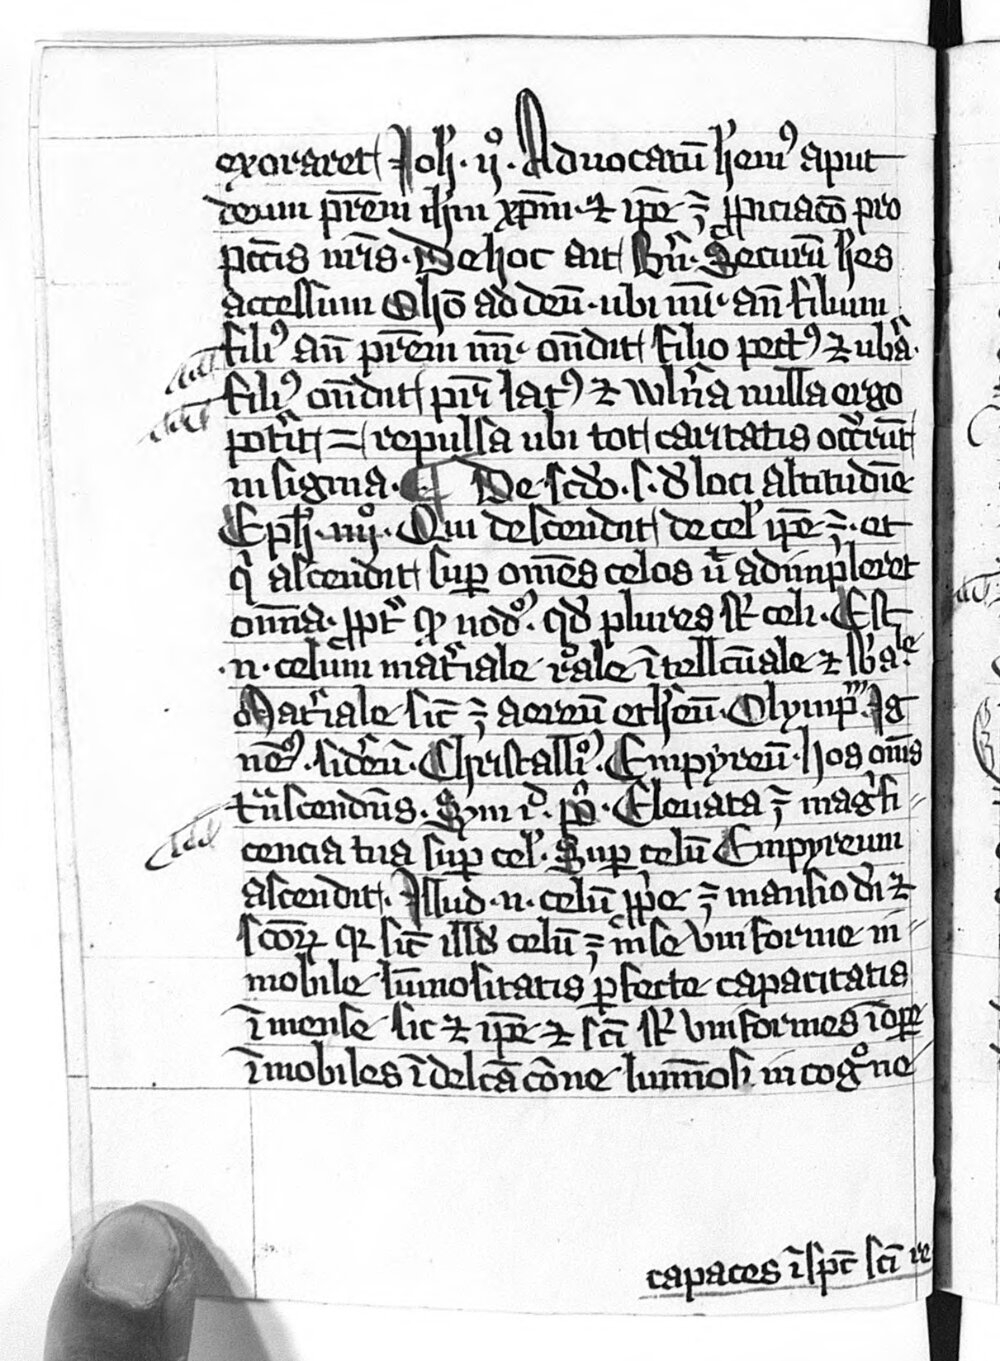 exoraret Joh. ij. Aduocatū hem9 aput
deum pr̄em ih̄m xp̄m. ⁊ ip̄e ē p̱piciac̄o pro
pcc̄is nr̄is. De hoc ait Bn̄. Securū hēs
accessum O hō ad deū. ubi mr̄ an̄ filium
fili9 an̄ pr̄em mr̄ on̄dit filio pect9 ⁊ ub̄a.
fili9 on̄dit pr̄i lat9 ⁊ wln̄a nulla ergo
pot̄it ē repulsa ubi tot caritatis occ̄rūt
insignia. De sc̄do. s. d̄ loci altitudīe
Eph̄. iiij. Qui descendit de cel' ip̄e ē. et
q̄ ascendit sup̱ om̄es celos ut adimpleret
om̄ia. p̱pt̄ qd̄ nod9. qd̄ plures st̄ celi. Est
.n. celum mat̄iale r̄ōale ītellc̄uale ⁊ sb̄ale
Mat̄iale sic̄ ē aereū eth̄eū. Olymp̄m Ig
neū. sid̄eū. Christallīū. Empyreū. hos om̄s
t̄nscendēs. Sym̄ i d̄. pō. Eleuata ē maḡfi
cencia tua sup̱ cel'. Sup̱ celū Empyreum
ascendit. Illud .n. celū p̱p̄e ē mansio dei ⁊
sc̄oꝝ qꝛ sic̄ illd̄ celū ē in se vniforme in
mobile lūmositatis p̱fecte capacitatis
īmense sic ⁊ ip̄e ⁊ sc̄i st̄ vniformes ī op̱e
īmobiles ī delc̄ac̄one lumīosi in cog̊ne
capaces ī sp̄c̄ sc̄i re